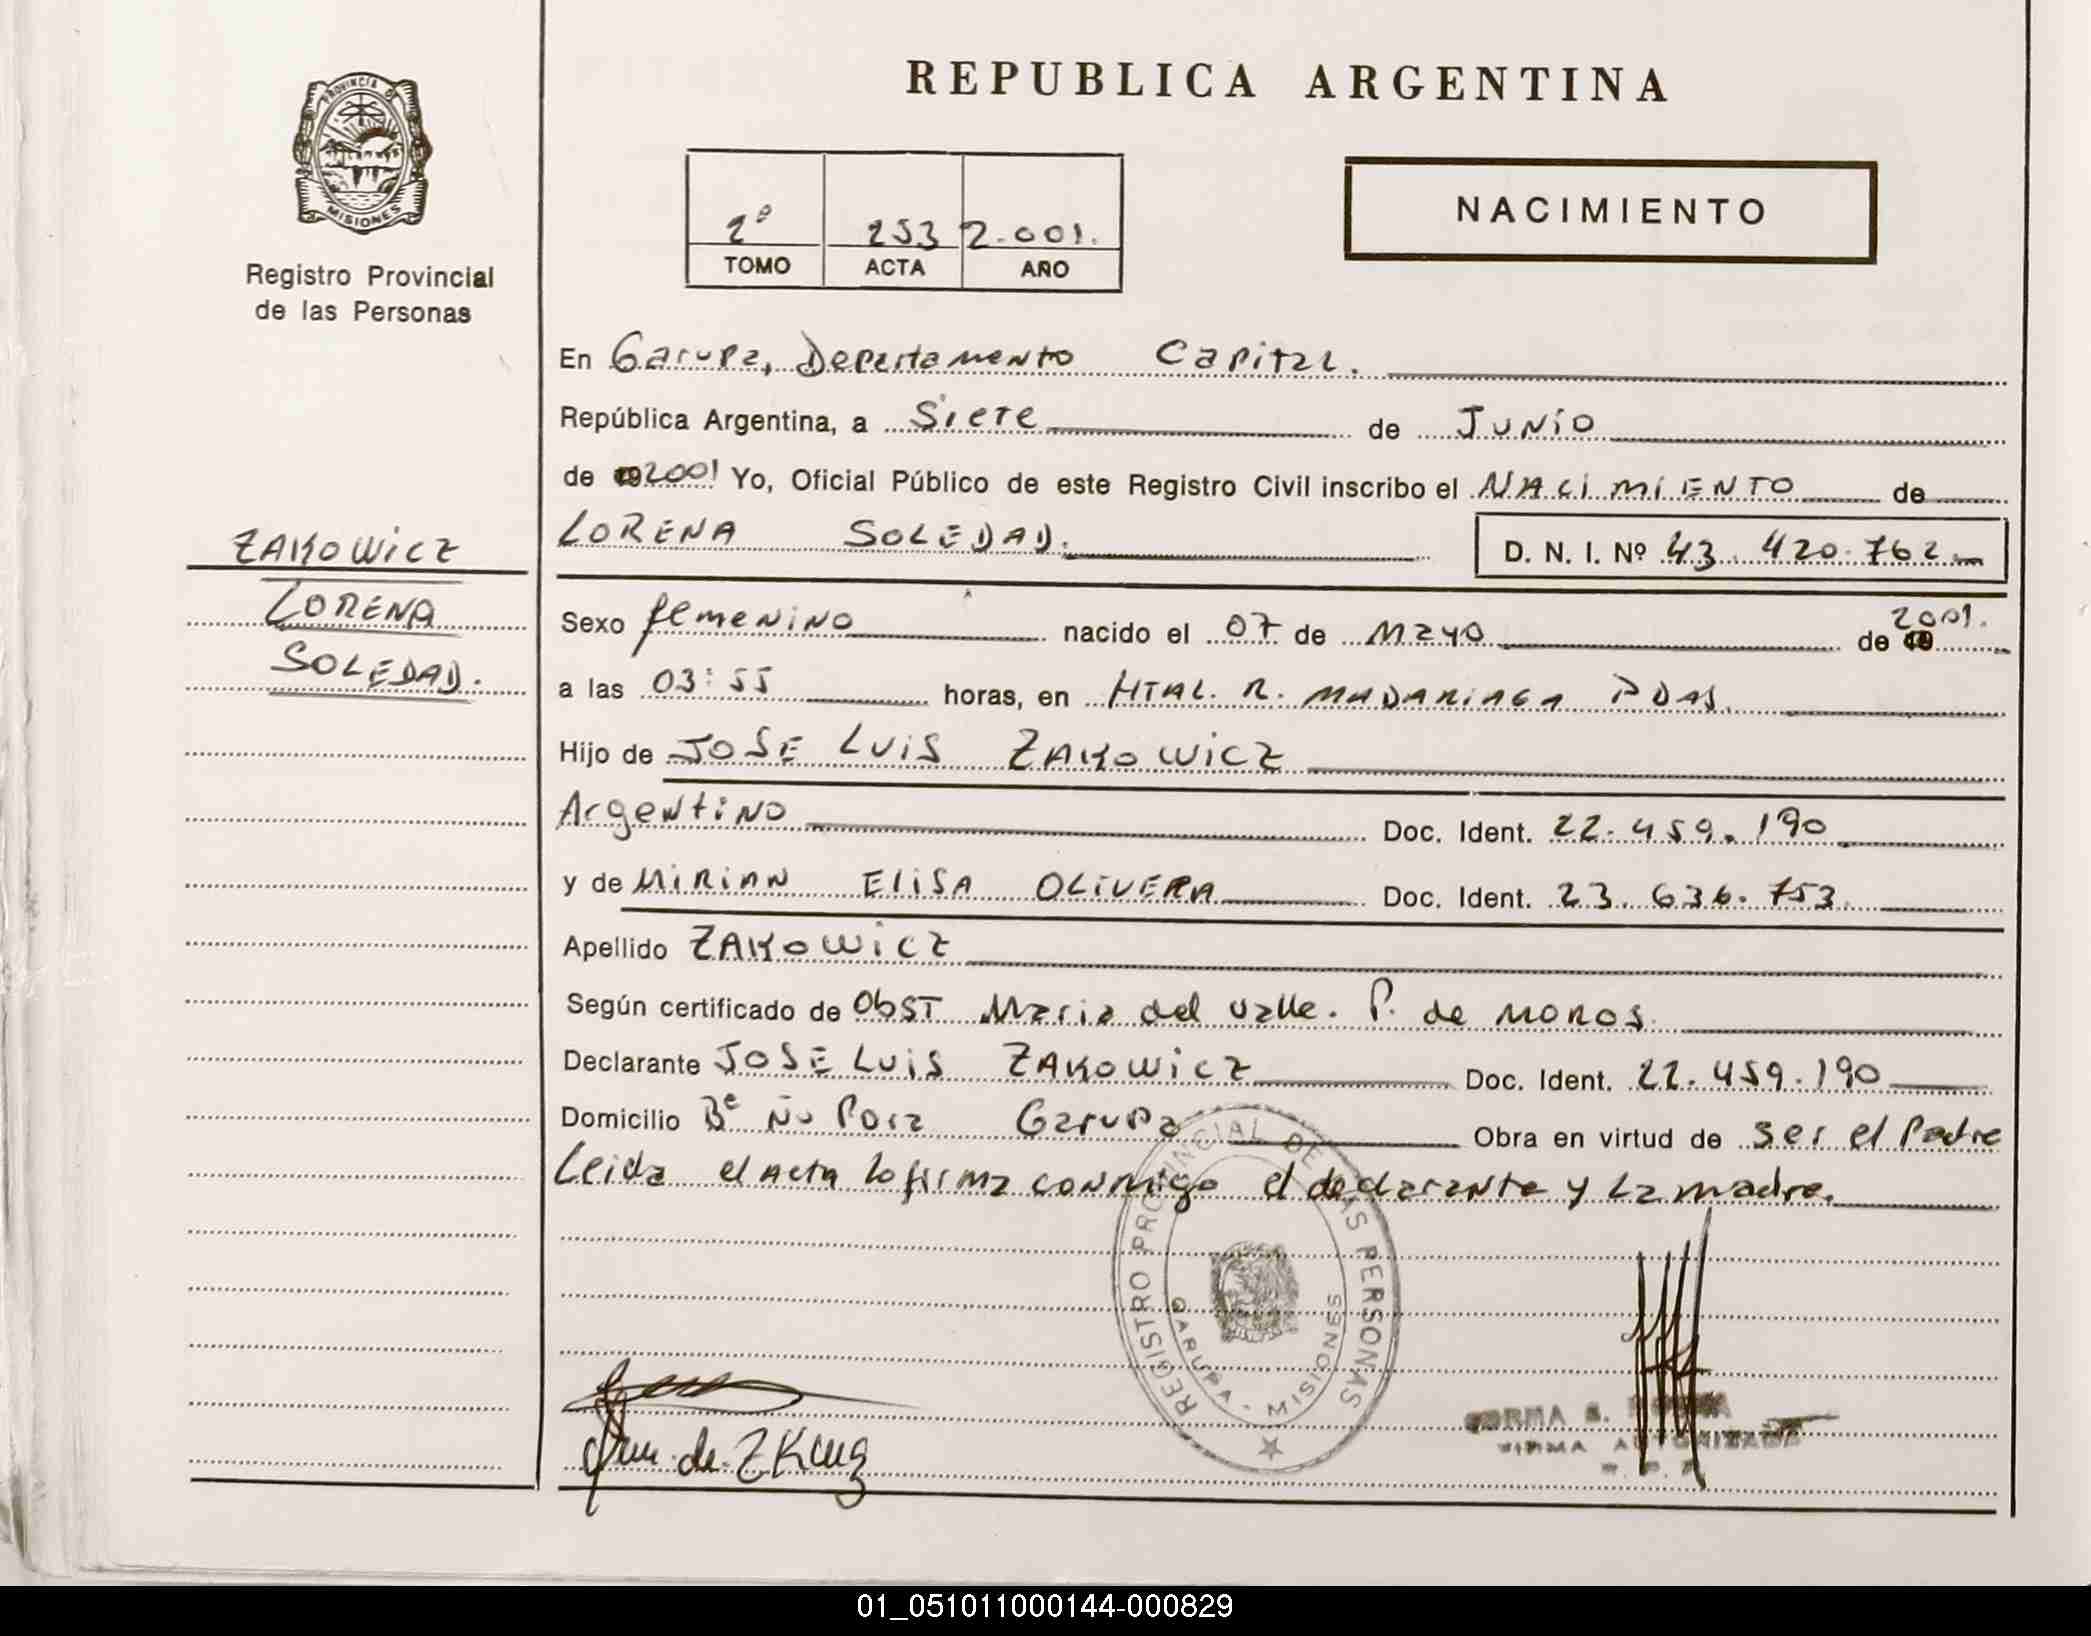 REPUBLICA ARGENTINA
PROVINCIA DE
MISIONES
Registro Provincial
de las Personas
2º 253 2.001.
TOMO ACTA AÑO
NACIMIENTO
En Garupa, Departamento Capital.
República Argentina, a Siete de Junio
de 19 2001 Yo, Oficial Público de este Registro Civil inscribo el NACIMIENTO de
LORENA SOLEDAD. D. N. I. Nº 43.420.762
ZAKOWICZ
LORENA
SOLEDAD.
Sexo femenino nacido el 07 de Mayo de 19 2001.
a las 03:55 horas, en HTAL. R. MADARIAGA PDAS.
Hijo de JOSE LUIS ZAKOWICZ
Argentino Doc. Ident. 22.459.190
y de MIRIAN ELISA OLIVERA Doc. Ident. 23.636.753.
Apellido ZAKOWICZ
Según certificado de ObST Maria del Valle. P. de MOROS.
Declarante JOSE LUIS ZAKOWICZ Doc. Ident. 22.459.190
Domicilio Bº Ñu Pora Garupa Obra en virtud de ser el Padre
Leida el Acta lo firma conmigo el declarante y La madre.
REGISTRO PROVINCIAL DE LAS PERSONAS
GARUPA - MISIONES
de
NORMA S.
FIRMA AUTORIZADA
R. P. P.
01_051011000144-000829